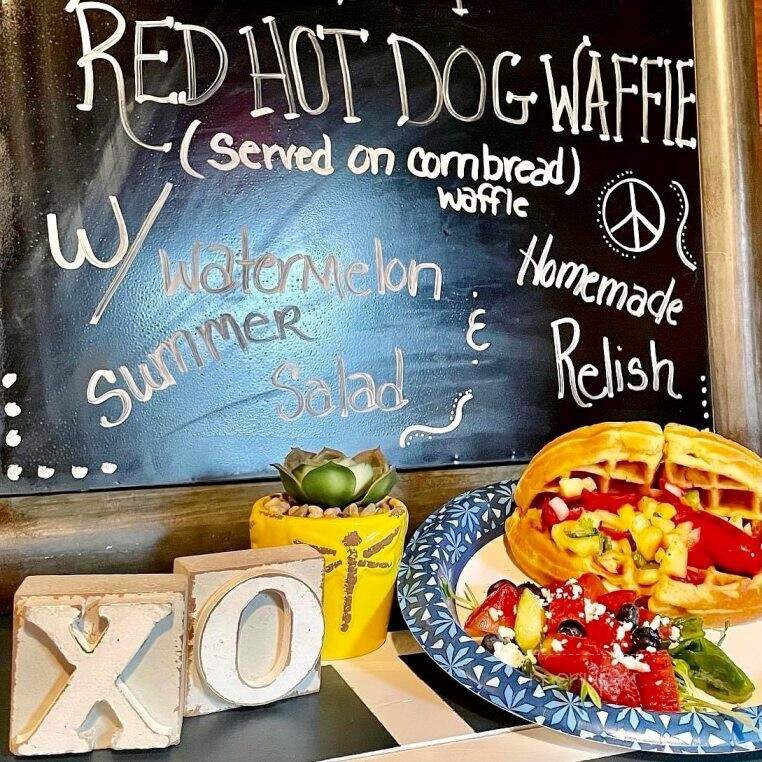 RED HOT DOG WAFFlE
(served on cornbread)
waffle
W/ Watermelon
Summer
Salad
&
Homemade
Relish
XO